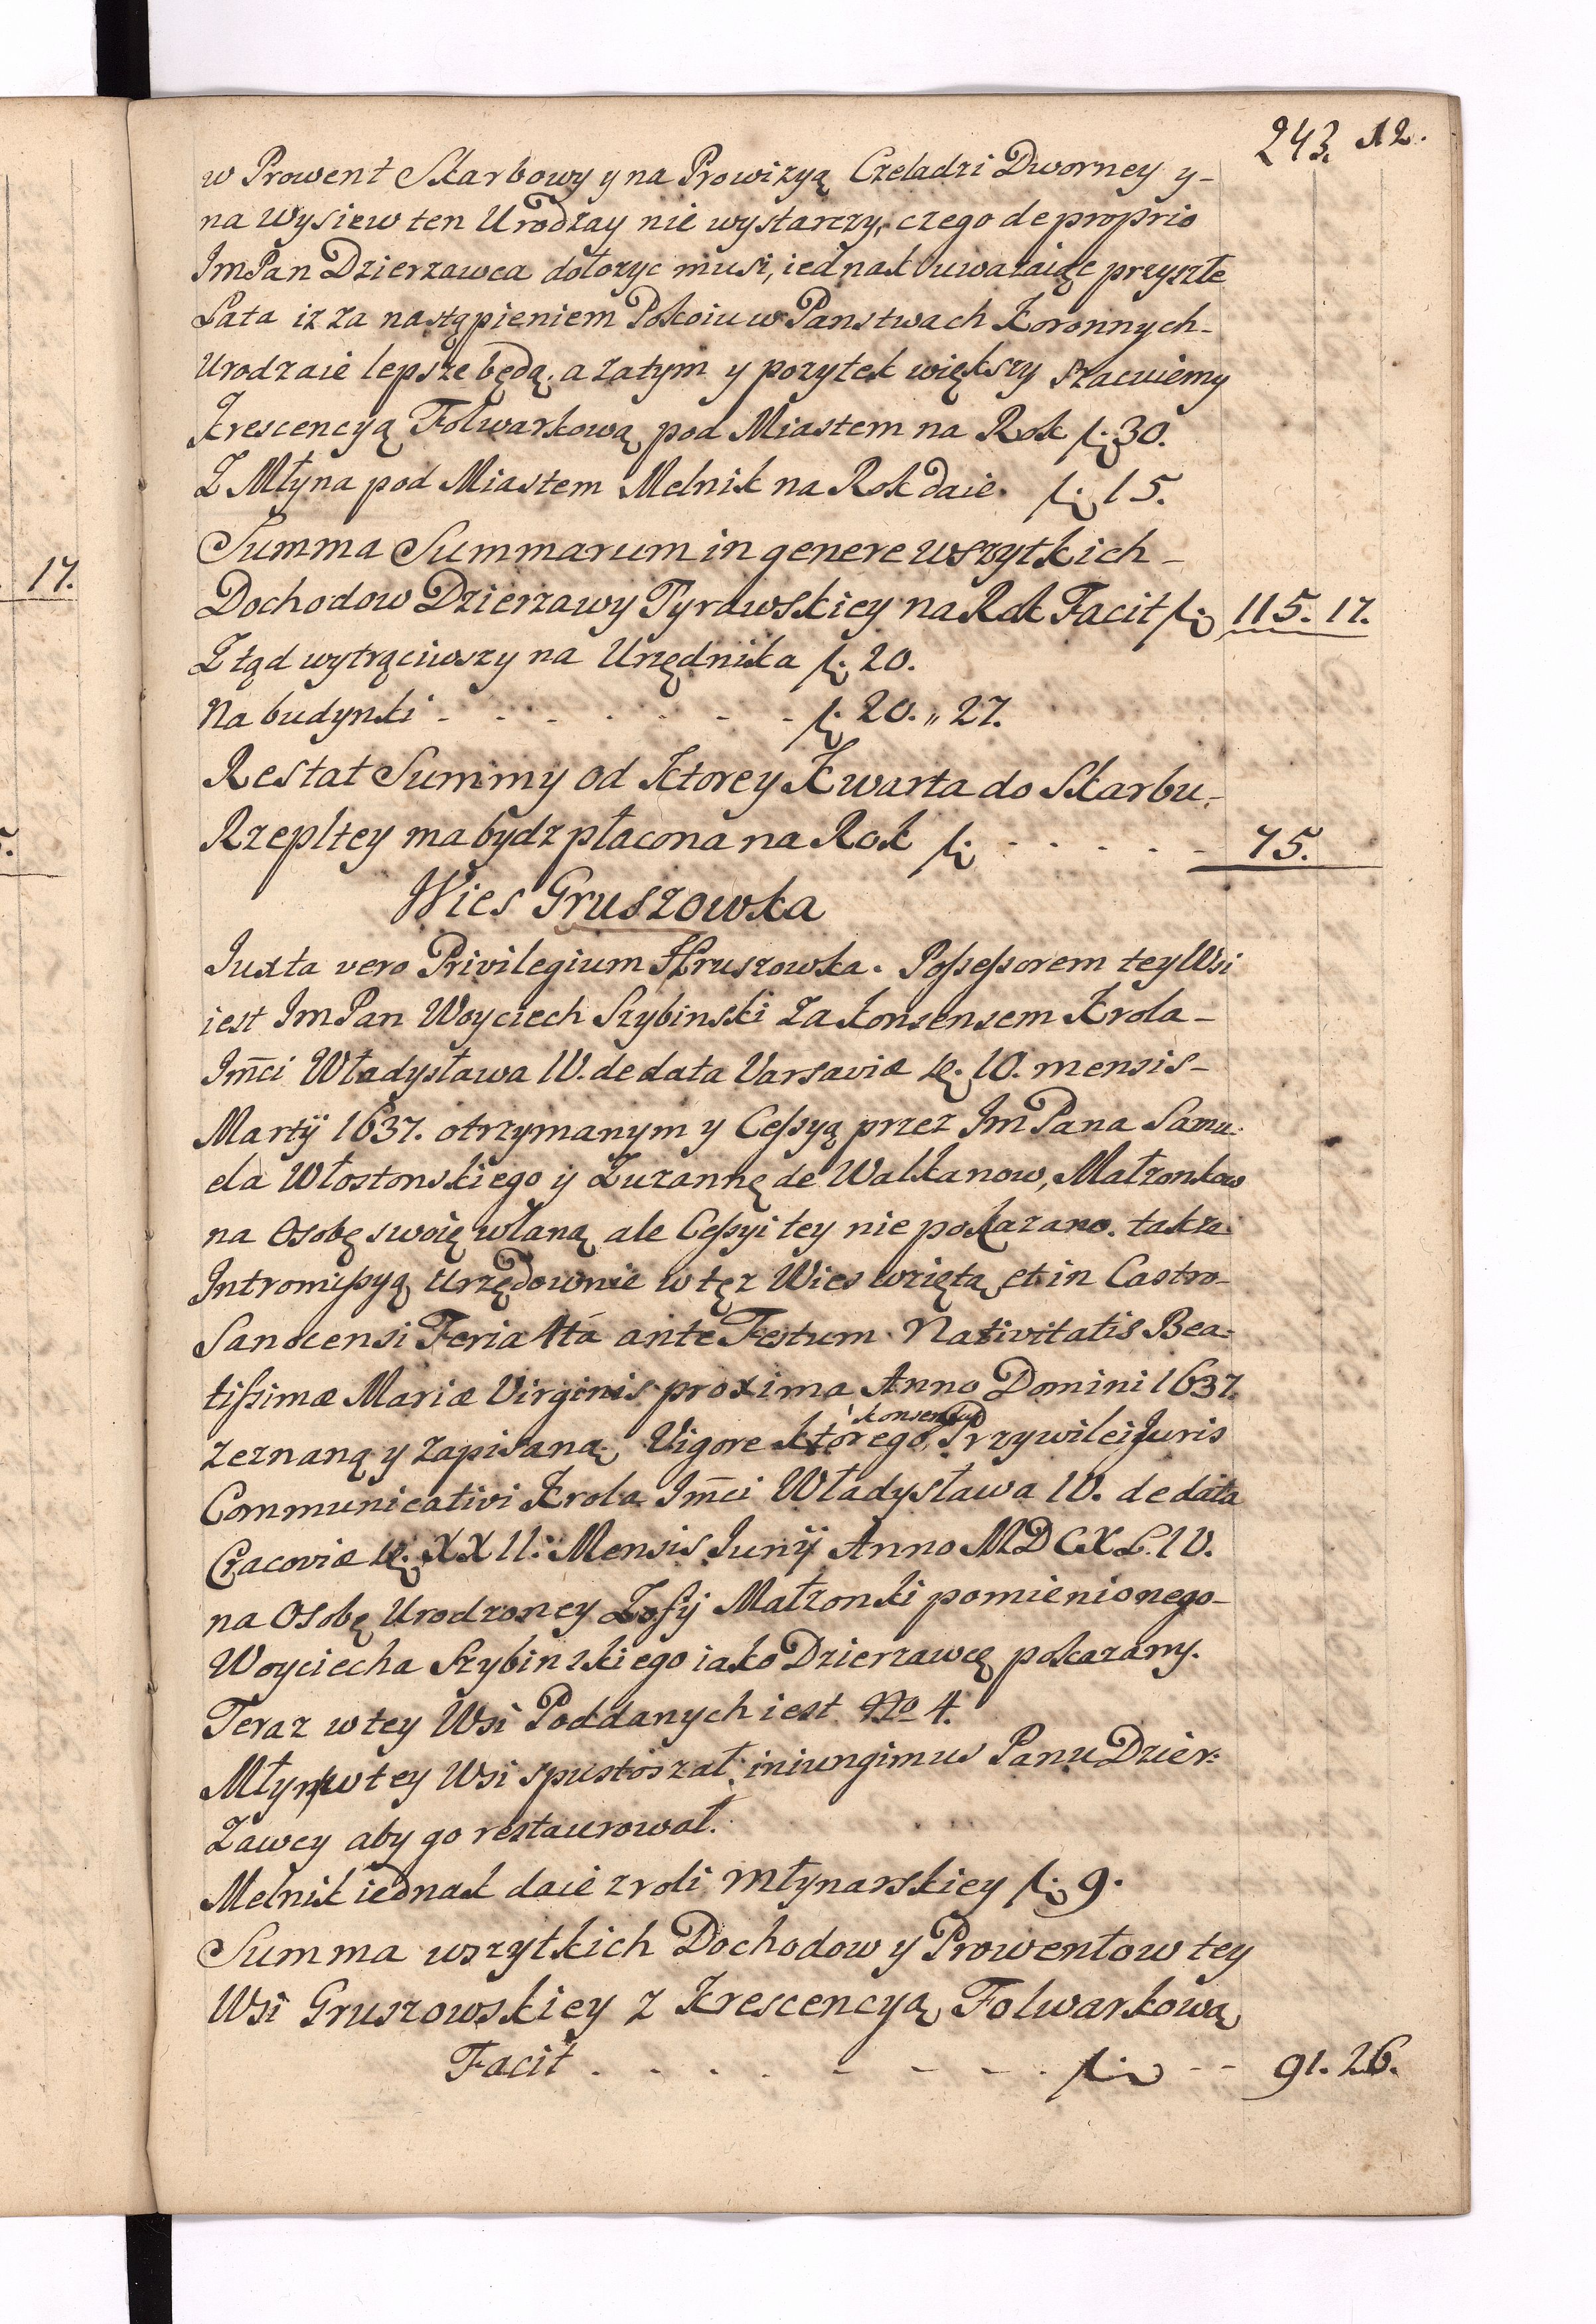 243. 12.
w Prowent Skarbowy y na Prowizyą Czeladzi Dworney y-
na Wysiew ten Urodzay nie wystarczy, czego de proprio
ImPan Dzierzawca dołozyc musi, iednak uwazaiąc przyszłe
Lata iz za nastąpieniem Pokoiu w Panstwach Koronnych-
Urodzaie lepsze będą, a zatym y pozytek większy szacuiemy
Krescencyą Folwarkową pod Miastem na Rok f. 30.
Z Młyna pod Miastem Melnik na Rok daie. f. 15.
Summa Summarum in genere wszytkich-
Dochodow Dzierzawy Tyrawskiey na Rok Facit f. 115. 17.
Ztąd wytrąciwszy na Urzędnika f. 20.
Na budynki - - - - - - - f. 20. „ 27.
Restat Summy od Ktorey Kwarta do Skarbu-
Rzepltey ma bydz płacona na Rok f. - - - - - 75.
Wies Gruszowka
Iuxta vero Privilegium Hruszowka. Possessorem tey Wsi
iest ImPan Woyciech Szybinski za konsensem Krola-
Imci Władysława IV. de data Varsaviæ D. 10. mensis-
Martij 1637. otrzymanym y Cessyą przez ImPana Samu-
ela Włostonskiego y Zuzannę de Walkanow, Małzonkow
na Osobę swoię wlaną ale Cessyi tey nie pokazano. takze
Intromissyą Urzędownie w tęz Wies wziętą et in Castro-
Sanocensi Feria 4tá ante Festum Nativitatis Bea-
tissimæ Mariæ Virginis proxima Anno Domini 1637.
zeznaną y zapisaną. Vigore którego konsensu Przywilei Juris
Communicativi Krola Imci Władysława IV. de data
Cracoviæ D. XXII. Mensis Junij Anno MDCXL.IV.
na Osobę Urodzoney Zofij Małzonki pomienionego-
Woyciecha Szybinskiego iako Dzierzawcę pokazany.
Teraz w tey Wsi Poddanych iest No 4.
Młyn w tey Wsi spustoszał, iniungimus Panu Dzier-
zawcy aby go restaurował.
Melnik iednak daie z roli młynarskiey f. 9.
Summa wszytkich Dochodow y Prowentow tey
Wsi Gruszowskiey z Krescencyą Folwarkową
Facit . - - . - - - . f. - - 91. 26.
17.